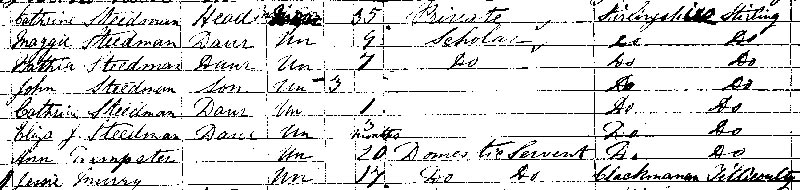 Cathrine Steedman Head 35 Private Stirlingshire Stirling
Maggie Steedman Daur Un 9 Scholar Do Do
Steedman Daur Un 7 Do Do Do
John Steedman Son Un 3 Do Do
Cathrine Steedman Daur Un 1 Do Do
Eliza J. Steedman Daur Un 3 months Do Do
Ann Un 20 Domestic Servent Do Do
Jessie Murry Un 17 Do Do Clackmanan Tillicoultry